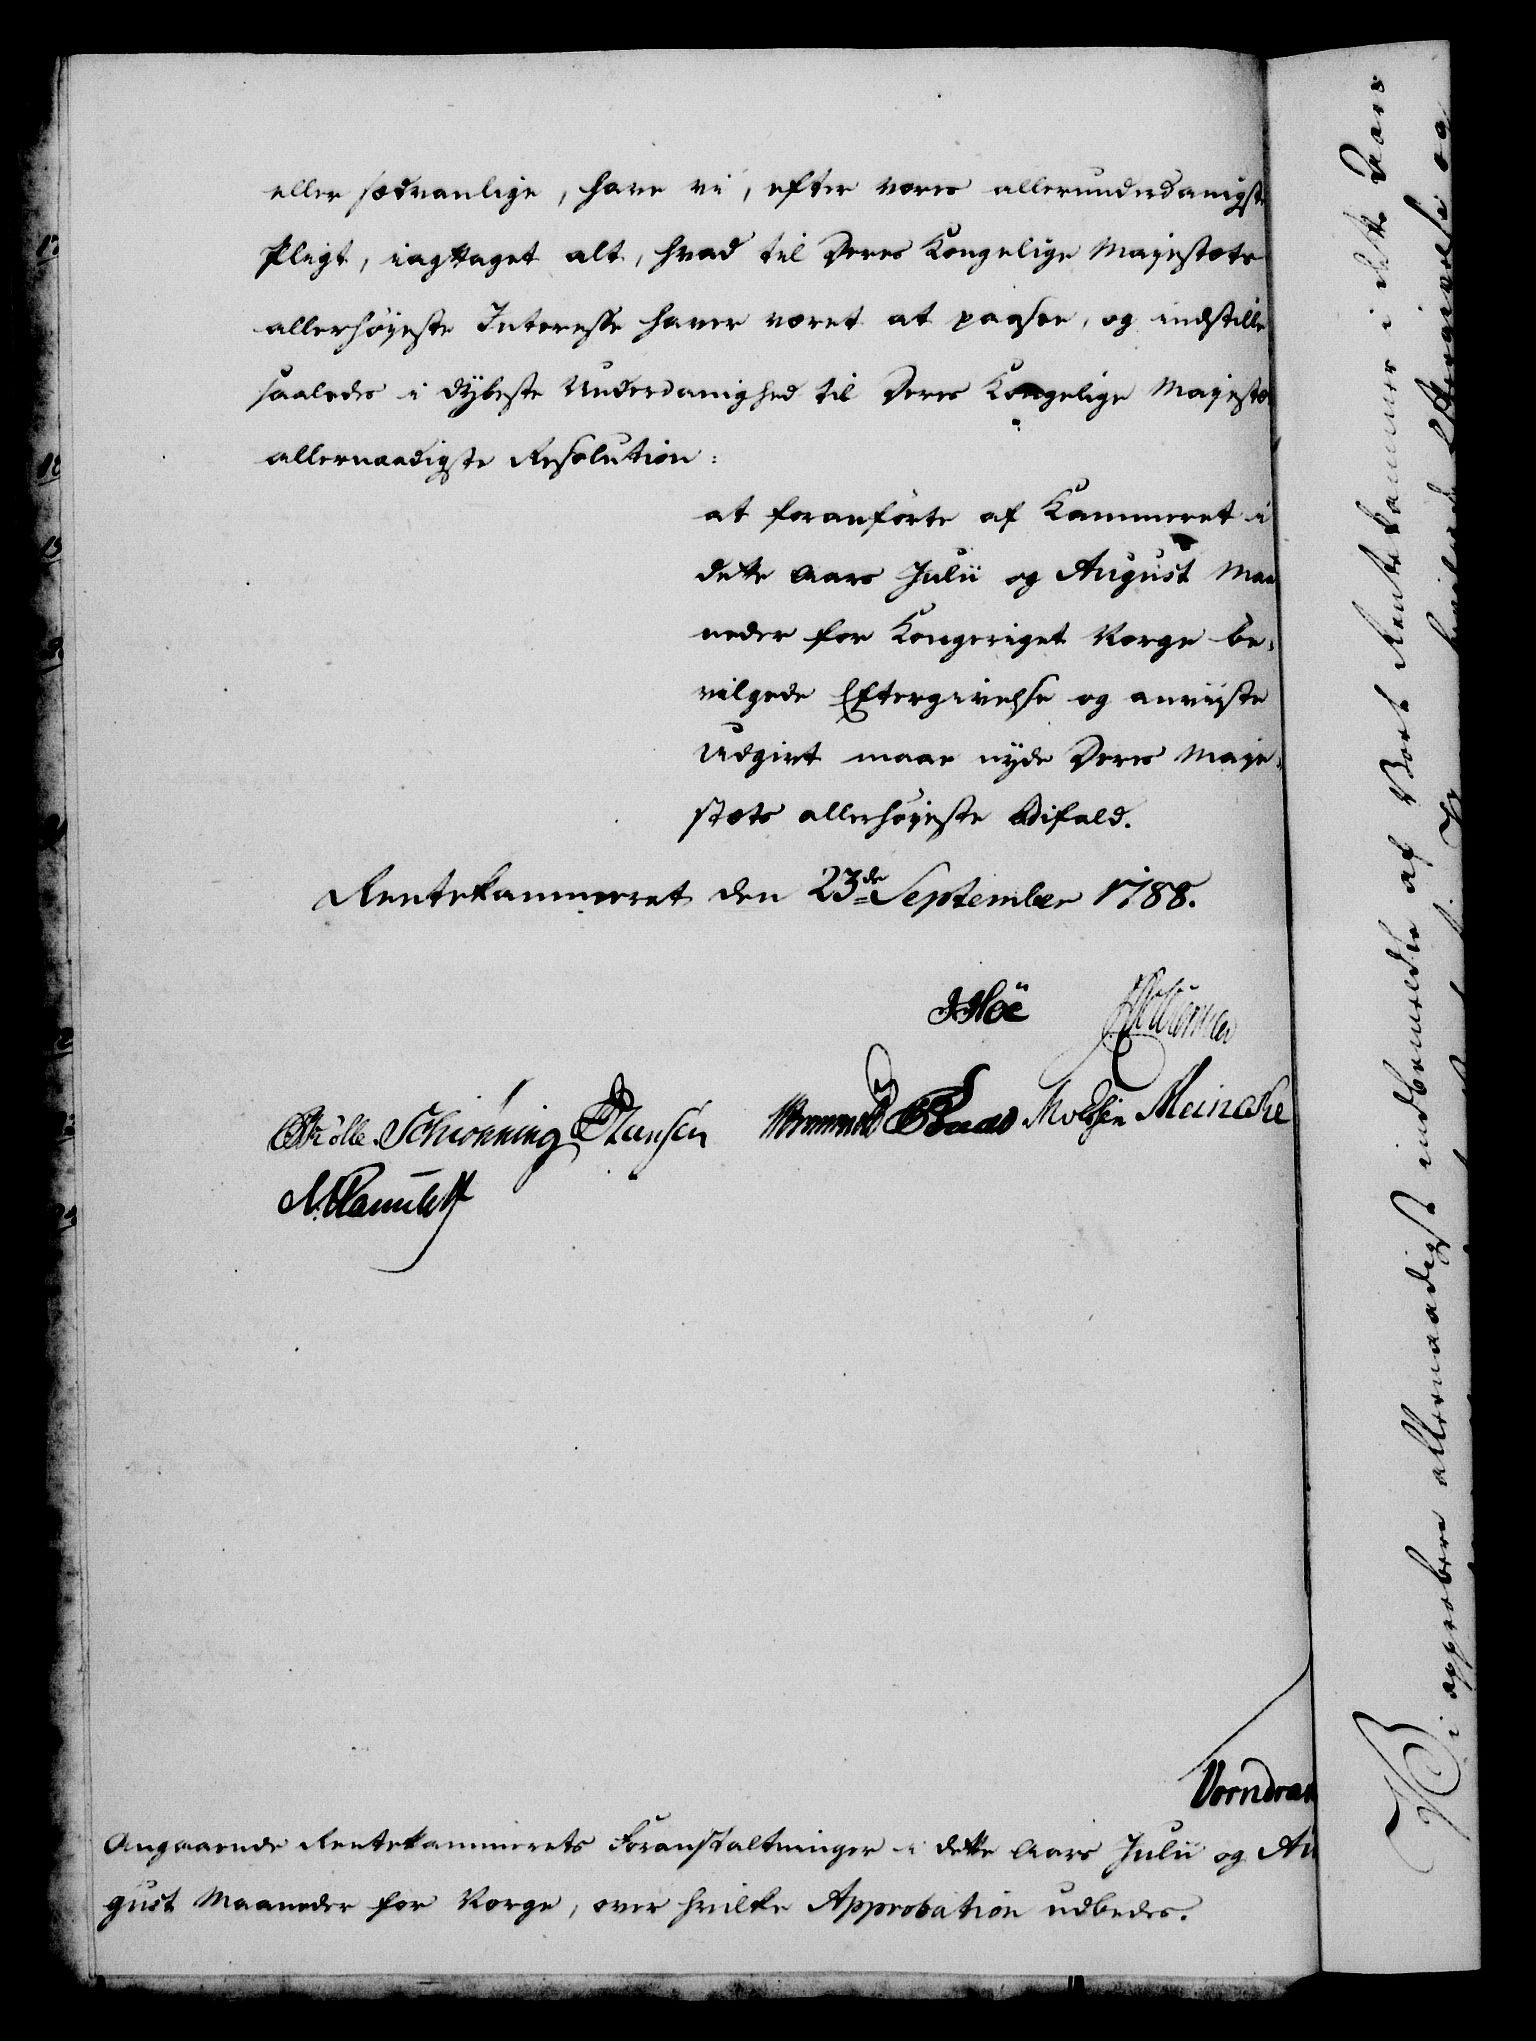 eller sædvanlige, have vi, efter vores allerunderdanigste
Pligt, iagttaget alt, hvad til Deres Kongelige Majestæts
allerhøyeste Interesse haver været at paasee, og indstille
saaledes i dybeste Underdanighed til Deres Kongelige Majestæts
allernaadigste Resolution:
at foranførte af Kammeret i
dette Aars Julii og August Maa
neder for Kongeriget Norge be-
vilgede Eftergivelse og anviiste
Udgivt maae nyde Deres Maje-
stæts allerhøyeste Bifald.
Rentekammeret den 23de September 1788.
Schiønning Hansen
Meincke
Vorndran
Angaaende Rentekammerets Foranstaltninger i dette Aars Julii og Au
gust Maaneder for Norge, over hvilke Approbation udbedes.
Vi approbere allernaadigst indbemeldte af Vort Rentekammer i dette Aars